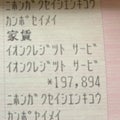 ニホンガクセイシエンキコウ
カンポセイメイ
家賃
イオンクレジツト サービ
イオンクレジツト サービ
*197,894
ニホンガクセイシエンキコウ
カンポセイメイ